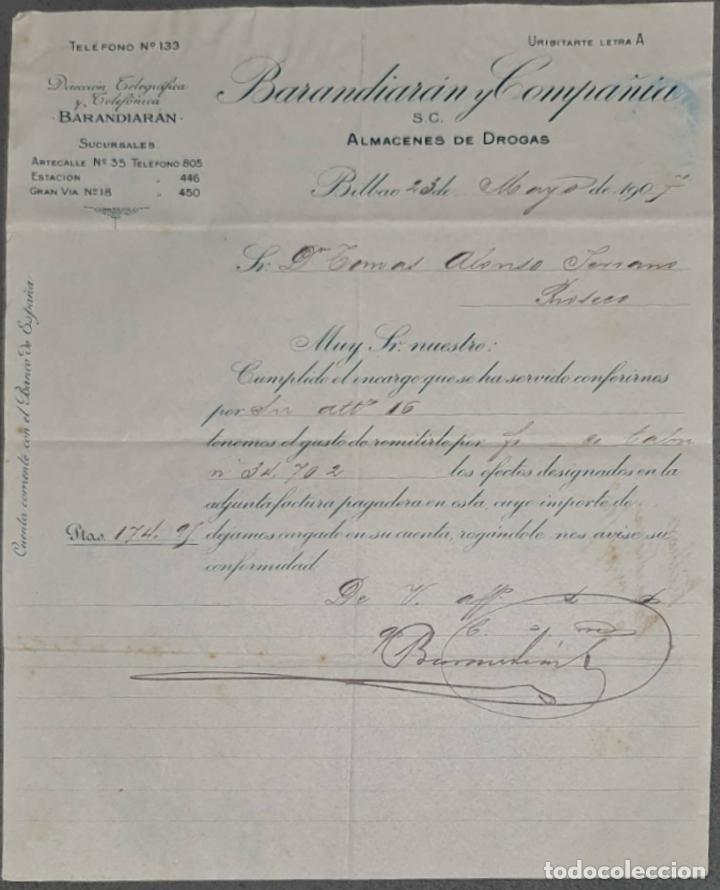 TELÉFONO Nº 133
URIBITARTE LETRA A
Dirección Telegráfica
y Telefónica
BARANDIARÁN
Barandiarán y Compañia
S.C.
ALMACENES DE DROGAS
SUCURSALES
ARTECALLE Nº 35 TELÉFONO 805
ESTACIÓN " 446
GRAN VIA Nº 18 " 450
Bilbao 23 de Mayo de 1907
Sr. Dn Tomas Alonso Serrano
Rioseco
Muy Sr. nuestro:
Cumplido el encargo que se ha servido conferirnos
por Su attª 16
tenemos el gusto de remitirle por
nº 34.702 los efectos designados en la
adjunta factura pagadera en esta, cuyo importe de
Ptas. 174. dejamos cargado en su cuenta, rogándole nos avise su
conformidad
De V. aff.
Cuenta corriente con el Banco de España
todocoleccion